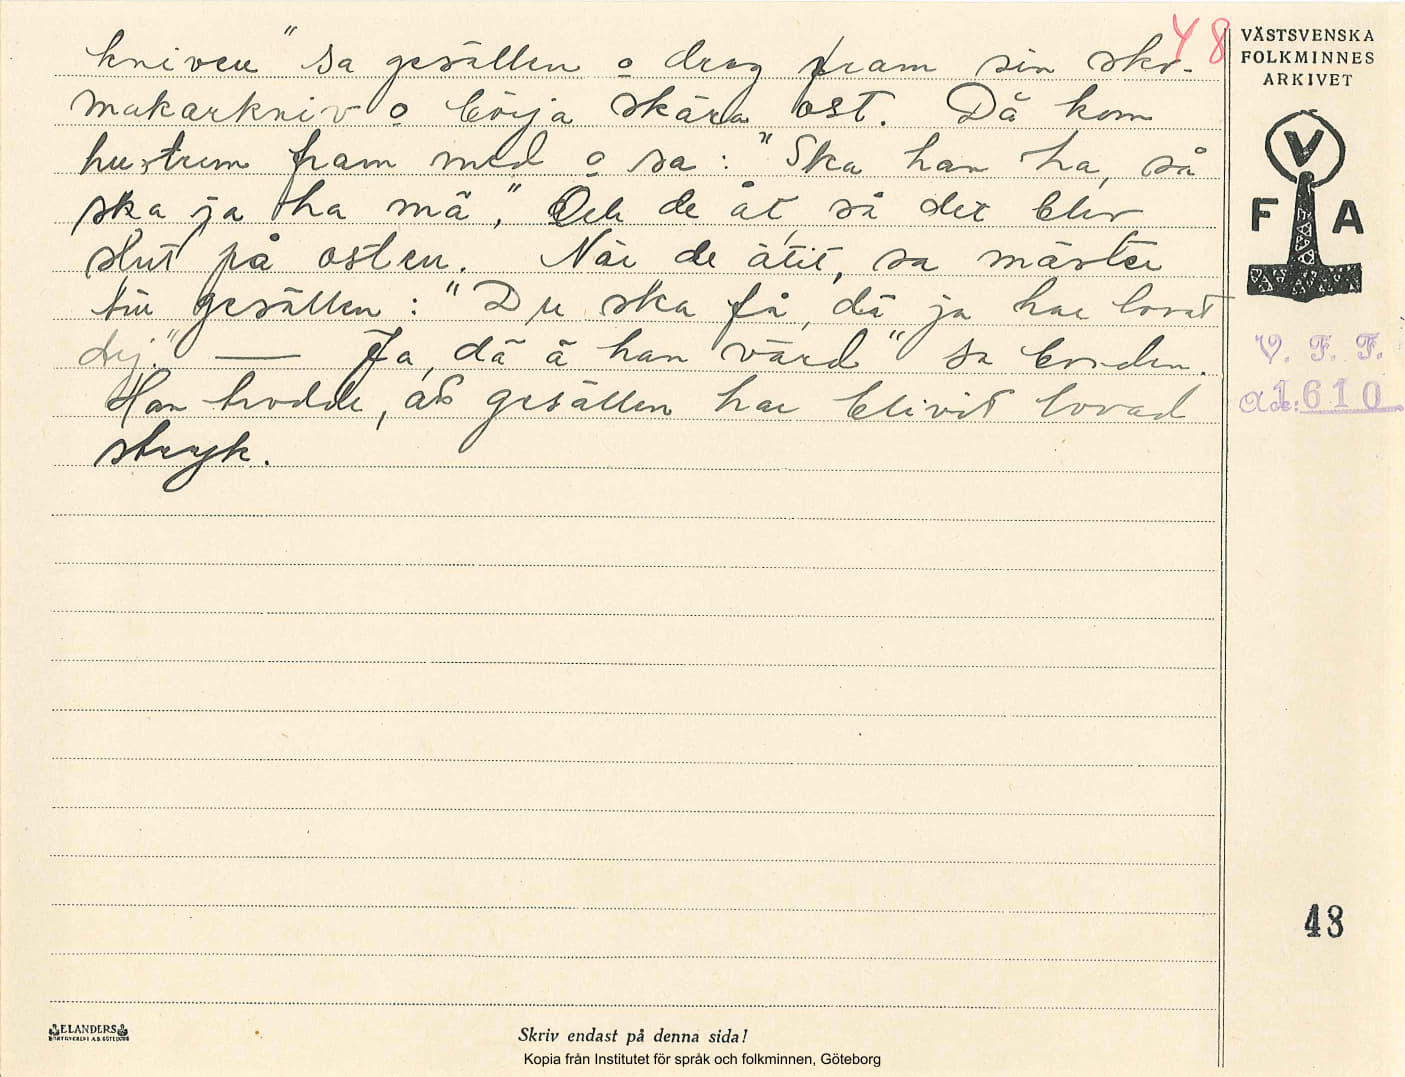 48
kniven" sa gesällen o drog fram sin sko-
makarkniv o börja skära ost. Då kom
hustrun fram med o sa: "Ska han ha, så
ska ja ha mä," Och de åt, så det blev
slut på osten. När de ätit, sa mäster
till gesällen: "Du ska få, dä ja har lovat
dej." — Ja, dä ä han värd" sa bonden.
Han trodde, att gesällen har blivit lovad
stryk.
VÄSTSVENSKA
FOLKMINNES
ARKIVET
V
F A
V. F. F.
Acc: 1610
48
ELANDERS
BOKTRYCKERI A.B. GÖTEBORG
Skriv endast på denna sida!
Kopia från Institutet för språk och folkminnen, Göteborg